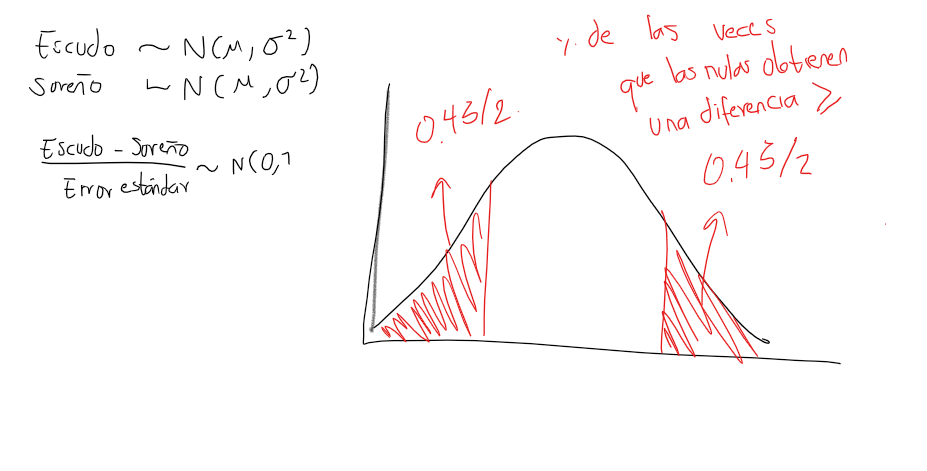 Escudo ~ N(μ, σ²)
Soreño ~ N(μ, σ²)
Escudo - Soreño
Error estándar
~ N(0,1
% de las veces
que las nulas obtienen
una diferencia ≥
0.43/2
0.43/2